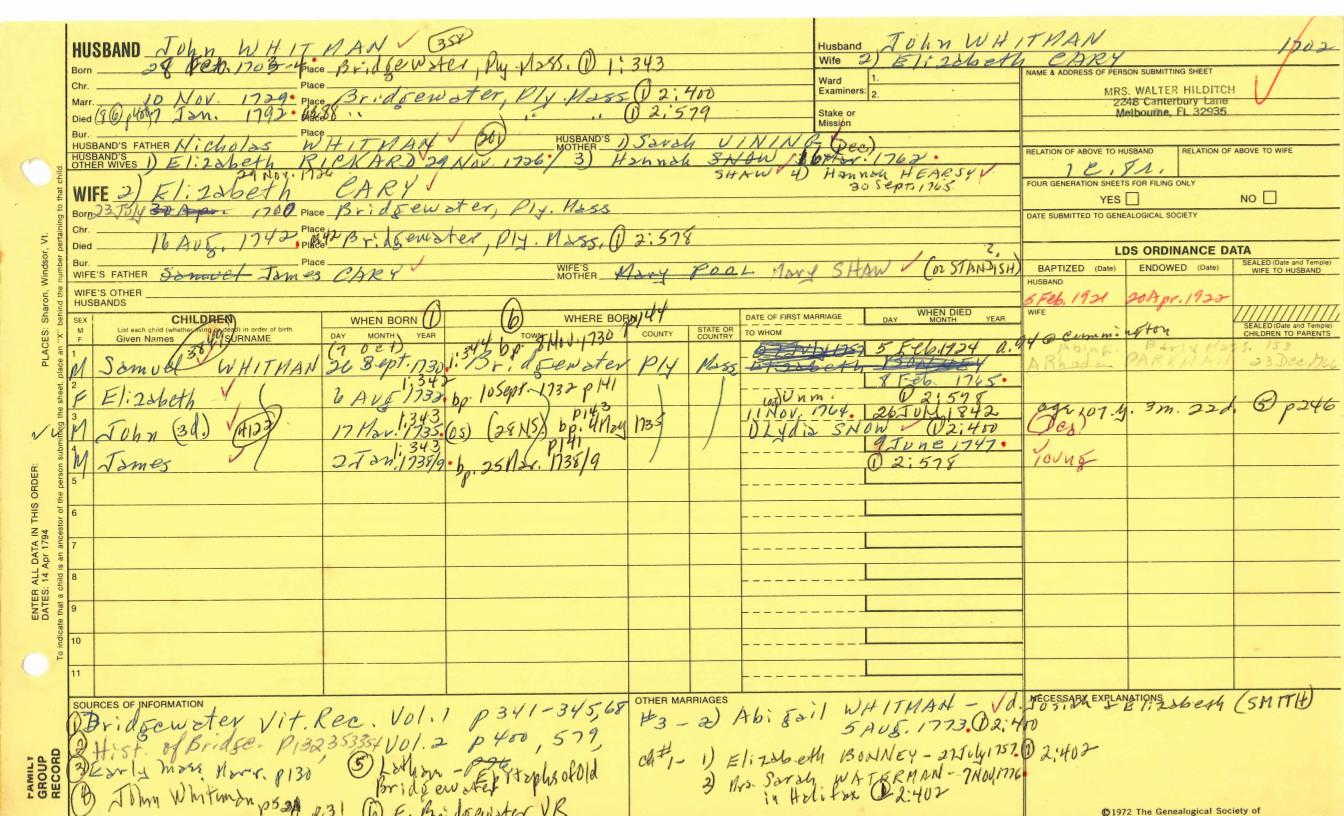 HUSBAND John WHITMAN ✓ (358)
Born 28 Feb. 1703-4. Place Bridgewater, Ply. Mass. ① 1:343
Chr. Place
Marr. 10 Nov. 1729. Place Bridgewater, Ply. Mass ① 2:400
Died Jan. 1792. Place " " ① 2:579
Bur. Place
HUSBAND'S FATHER Nicholas WHITMAN ✓ (201) HUSBAND'S MOTHER 1) Sarah VINING (Dec)
HUSBAND'S OTHER WIVES 1) Elizabeth RICKARD 29 Nov. 1726. 3) Hannah SNOW Mar. 1762.
29 Nov. 1726 SHAW 4) Hannah HEARSY ✓
30 Sept. 1765
WIFE 2) Elizabeth CARY ✓
Born 23 July 30 Apr. 1700 Place Bridgewater, Ply. Mass
Chr. Place
Died 16 Aug. 1742. Place Bridgewater, Ply. Mass. ① 2:578
Bur. Place
WIFE'S FATHER Samuel James CARY ✓ WIFE'S MOTHER Mary POOL Mary SHAW ✓ (or STANDISH) ?
WIFE'S OTHER HUSBANDS
Husband John WHITMAN 1702
Wife 2) Elizabeth CARY
Ward Examiners: 1.
2.
Stake or Mission
NAME & ADDRESS OF PERSON SUBMITTING SHEET
MRS. WALTER HILDITCH
2248 Canterbury Lane
Melbourne, FL 32935
RELATION OF ABOVE TO HUSBAND RELATION OF ABOVE TO WIFE
FOUR GENERATION SHEETS FOR FILING ONLY
YES NO
DATE SUBMITTED TO GENEALOGICAL SOCIETY
LDS ORDINANCE DATA
BAPTIZED (Date) ENDOWED (Date) SEALED (Date and Temple) WIFE TO HUSBAND
HUSBAND
5 Feb. 1921 20 Apr. 1922
WIFE
SEALED (Date and Temple) CHILDREN TO PARENTS
SEX M F
CHILDREN
List each child (whether living or dead) in order of birth.
Given Names SURNAME
WHEN BORN ①
DAY MONTH YEAR
⑥ WHERE BORN p144
TOWN COUNTY STATE OR COUNTRY
DATE OF FIRST MARRIAGE
TO WHOM
WHEN DIED
DAY MONTH YEAR
(7 Oct) 1:344 bp. 8 Nov. 1730 5 Feb. 1924 a. 94 @ Cummington
1 M Samuel WHITMAN 26 Sept. 1730. Bridgewater Ply Mass
1:342 8 Feb. 1765.
2 F Elizabeth ✓ 6 Aug 1732. bp. 10 Sept. 1732 p141 Unm. ① 2:578
1:343 p143 11 Nov. 1764. 26 July 1842 age 107 y. 3m. 22d. ⑤ p246
3 M John (3d.) (4122) 17 Mar. 1735. (OS) (28 NS) bp. 4 May 1735 1) Lydia SNOW ✓ ① 2:400 (Des)
1:343 p141 9 June 1747.
4 M James ✓ 2 Jan. 1738/9. bp. 25 Mar. 1738/9 ① 2:578 Young
5
6
7
8
9
10
11
SOURCES OF INFORMATION
① Bridgewater Vit. Rec. Vol. 1 p 341-345, 68
② Hist. of Bridge. Vol. 2 p 400, 579,
③ Early Mass Marr. p130 ⑤ Latham - Epitaphs of Old Bridgewater
④ John Whitman p31 ⑥ E. Bridgewater VR
OTHER MARRIAGES
#3 - 2) Abigail WHITMAN - ✓ d. Josiah & Elizabeth (SMITH)
5 AUG. 1773. ① 2:400
ch #1 - 1) Elizabeth BONNEY - 22 July 1757. ① 2:402
2) Mrs. Sarah WATERMAN - 7 Nov. 1776
in Halifax ① 2:402
NECESSARY EXPLANATIONS
©1972 The Genealogical Society of
PLACES: Sharon, Windsor, Vt.
ENTER ALL DATA IN THIS ORDER:
DATES: 14 Apr 1794
To indicate that a child is an ancestor of the person submitting the sheet, place an "X" behind the number pertaining to that child.
FAMILY GROUP RECORD